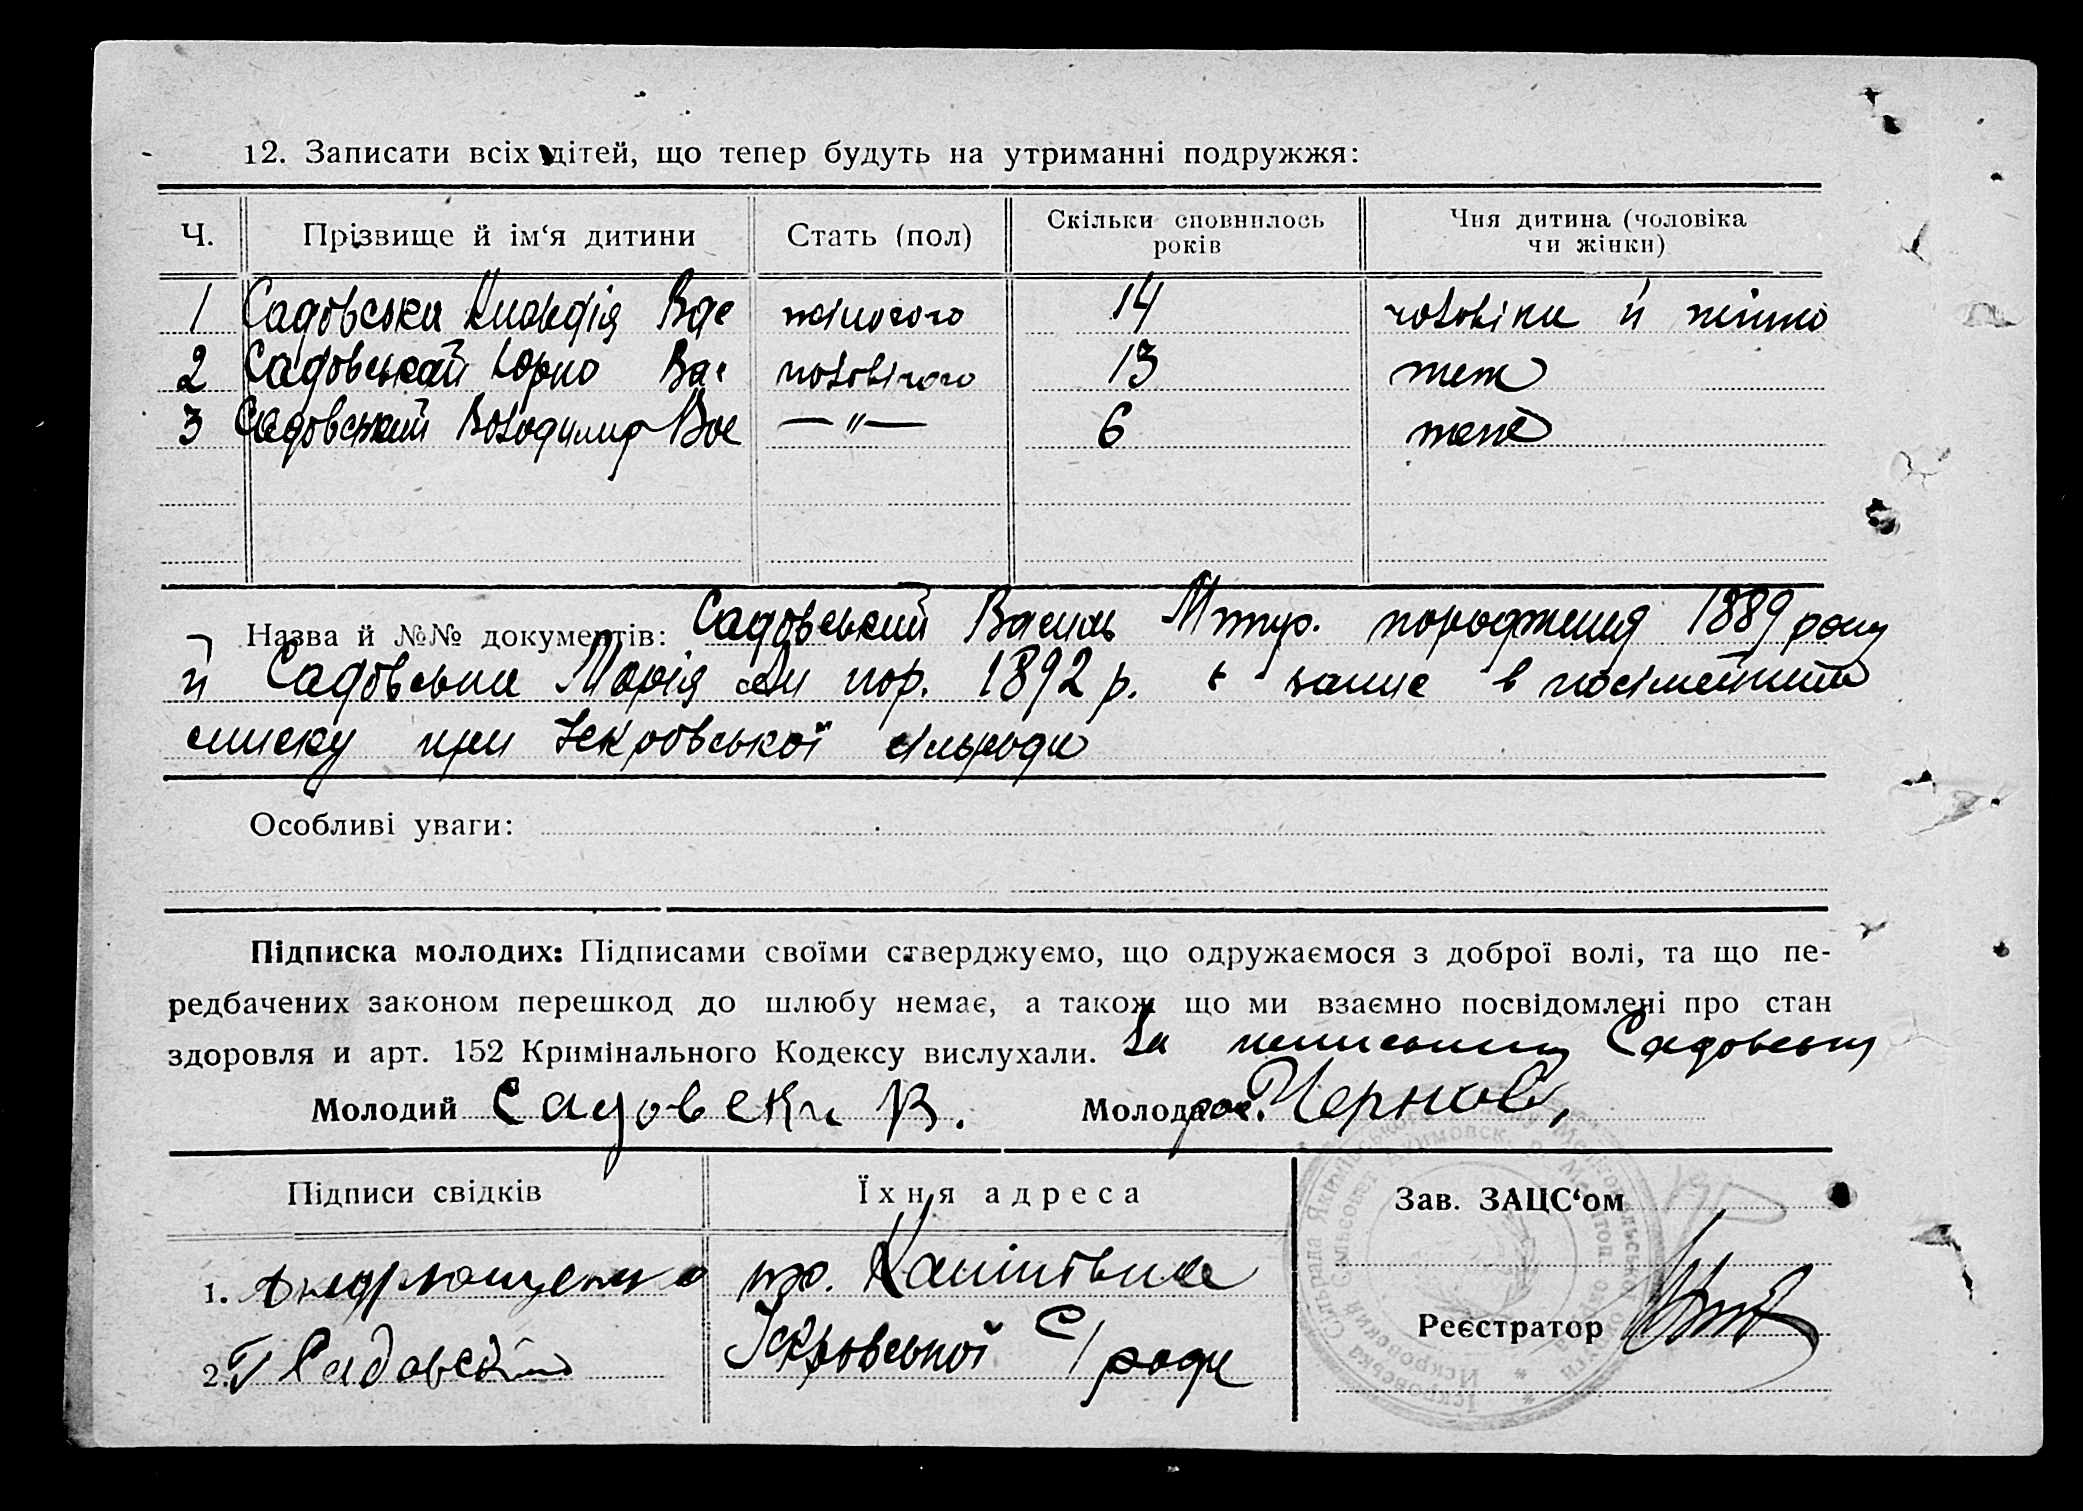 12. Записати всіх дітей, що тепер будуть на утриманні подружжя:
Ч. Прізвище й ім‘я дитини Стать (пол) Скільки сповнилось років Чия дитина (чоловіка чи жінки)
1 Садовська Вас жіночого 14 чоловіка й жінки
2 Садовський Вас чоловічого 13 теж
3 Садовський Володимир Вас —〃— 6 теж
Назва й №№ документів: Садовський Василь породження 1889 року
й Садовська Марія пор. 1892 р. є запис в посімейним
списку при Іскровської сільради
Особливі уваги:
Підписка молодих: Підписами своїми стверджуємо, що одружаємося з доброї волі, та що пе-
редбачених законом перешкод до шлюбу немає, а також що ми взаємно посвідомлені про стан
здоровля и арт. 152 Кримінального Кодексу вислухали. За Садовську
Молодий Садовски В. Молода Чернов
Підписи свідків Їхня адреса Зав. ЗАЦС‘ом
1. Андрющенко
Реєстратор
2. Г Садовский Іскровської С/ради
Іскровська Сільрада Якимівського Мелітопольської округи
Искровский Сельсовет Акимовск. р. Мелитоп. округа